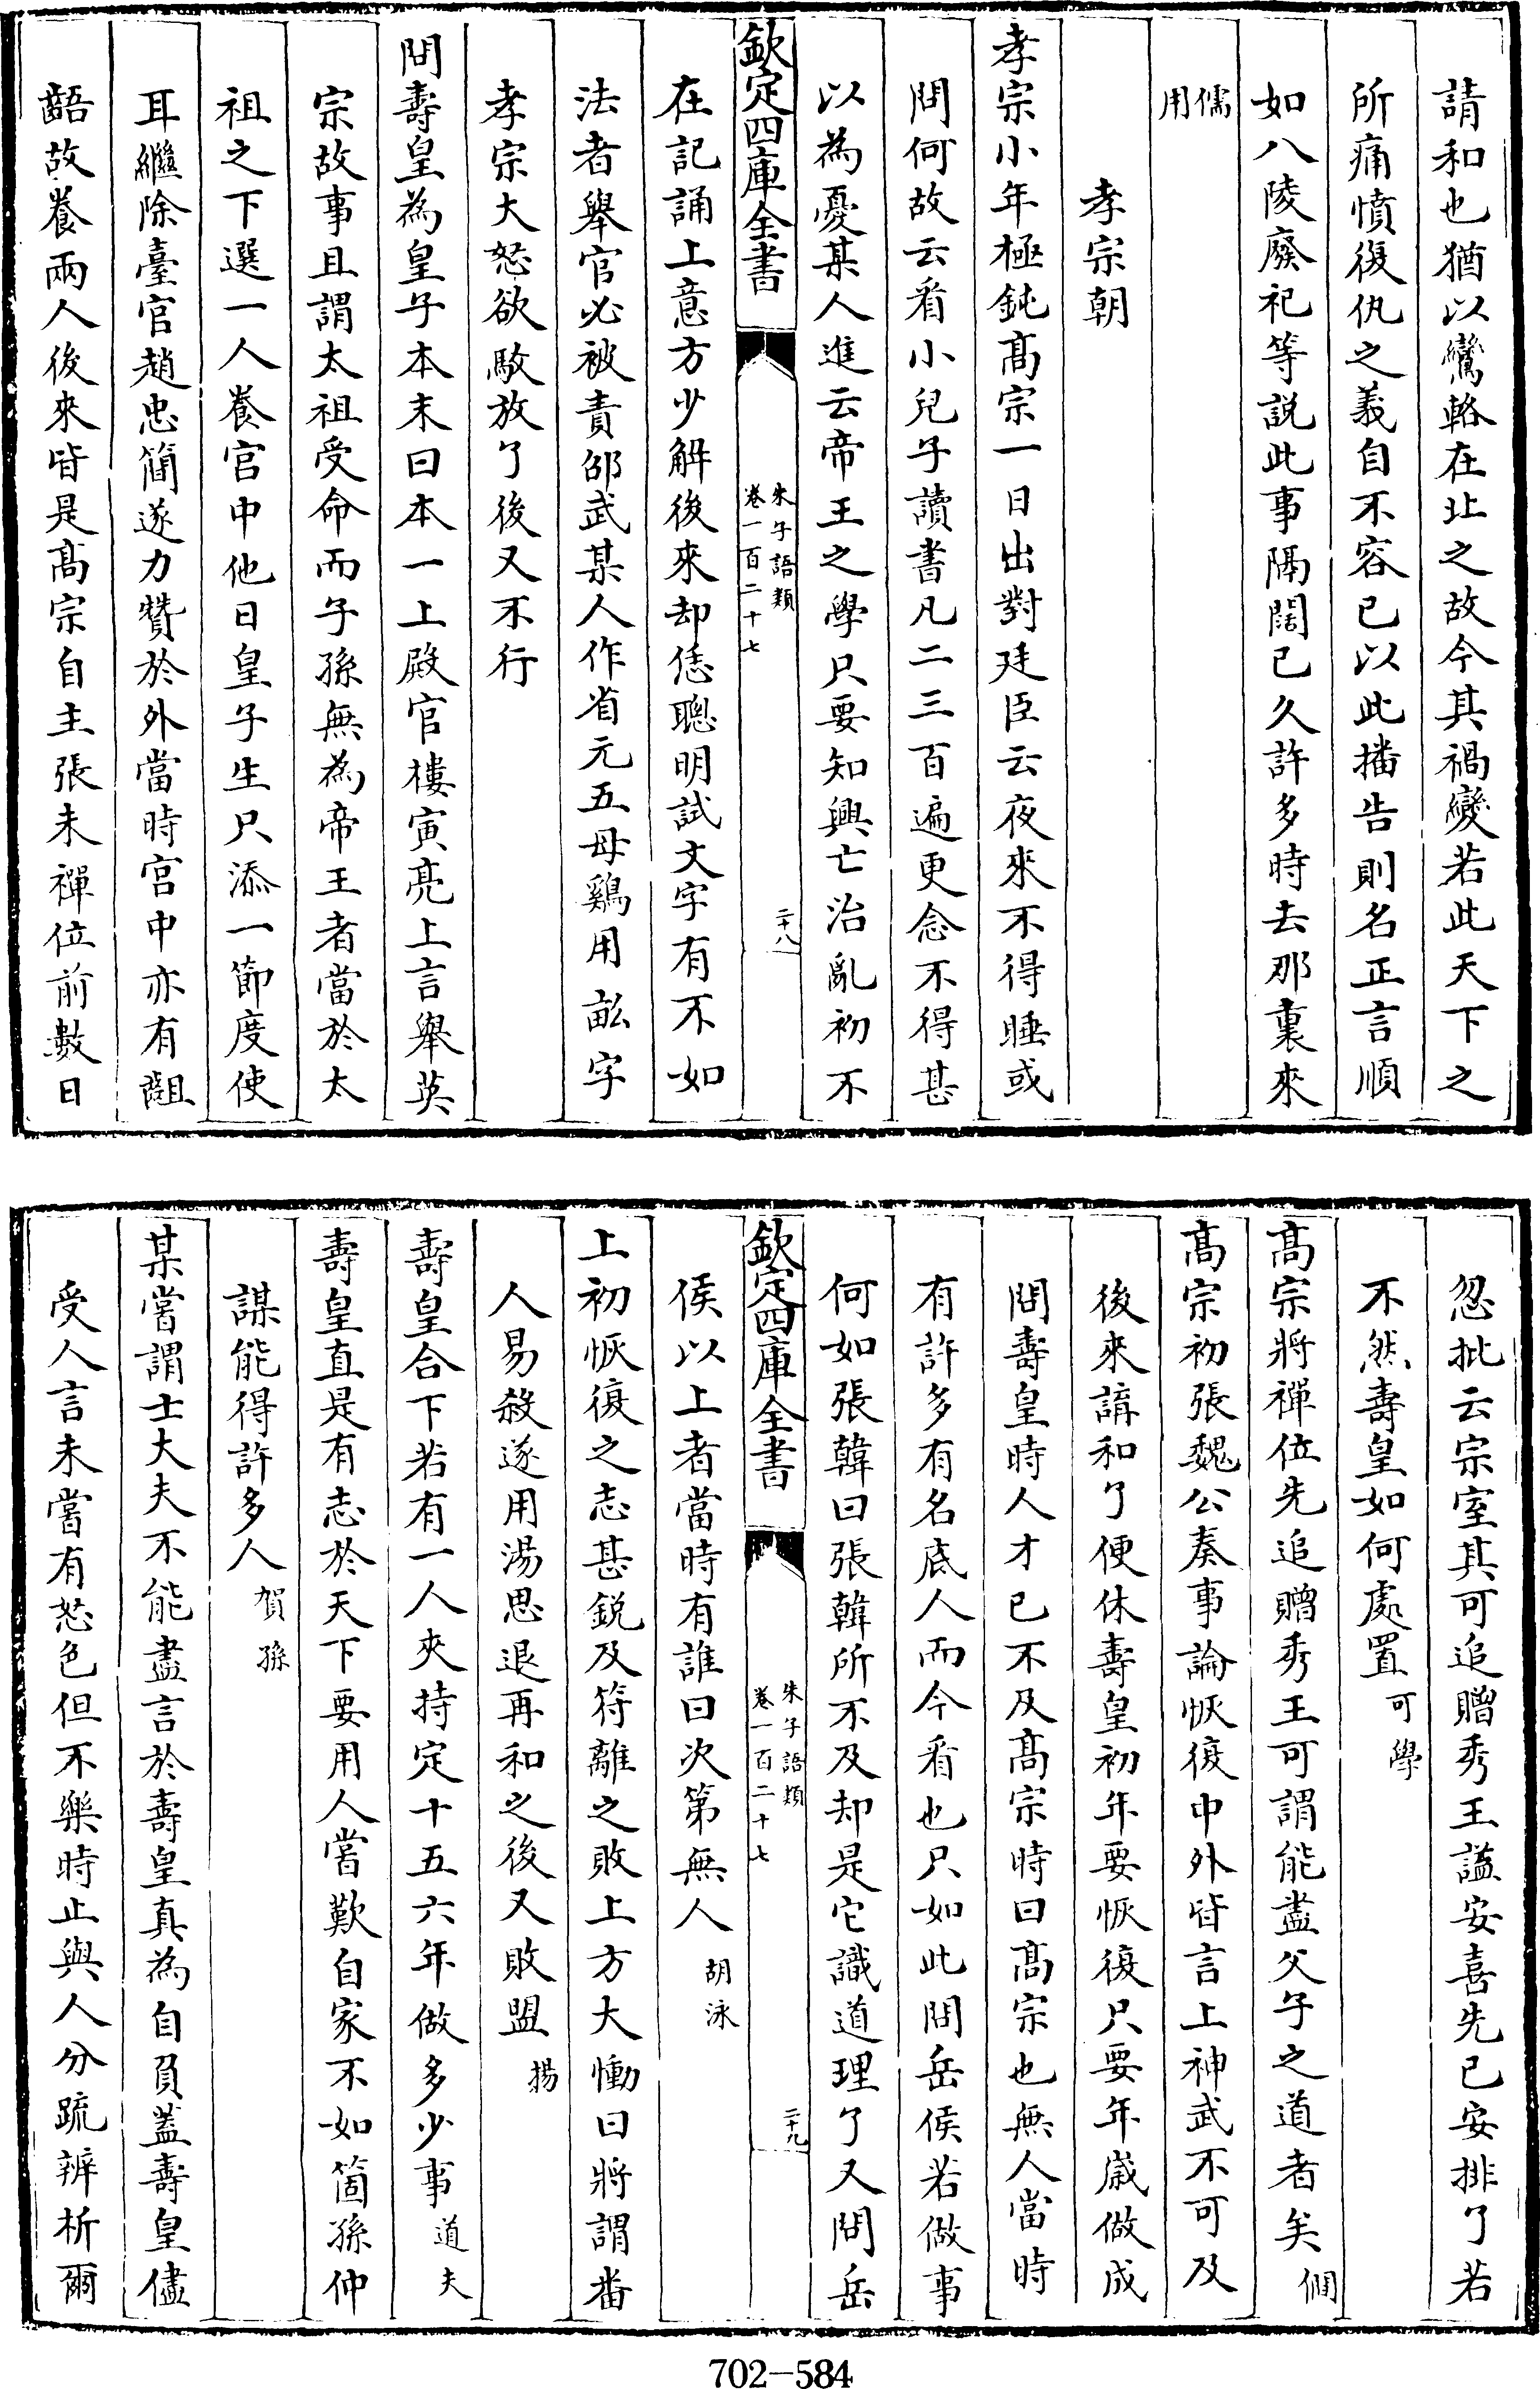 請和也猶以鸞輅在北之故今其禍變若此天下之
所痛憤復仇之義自不容已以此播告則名正言順
如八陵廢祀等説此事隔闊已久許多時去那裏來
儒用
孝宗朝
孝宗小年極鈍髙宗一日出對廷臣云夜來不得睡或
問何故云㸔小兒子讀書凡二三百遍更念不得甚
以為憂某人進云帝王之學只要知興亡治亂初不
欽定四庫全書
朱子語類
卷一百二十七
二十八
在記誦上意方少解後來却恁聰明試文字有不如
法者舉官必被責邵武某人作省元五母鷄用畝字
孝宗大怒欲駮放了後又不行
問壽皇為皇子本末曰本一上殿官樓寅亮上言舉英
宗故事且謂太祖受命而子孫無為帝王者當於太
祖之下選一人養宫中他日皇子生只添一節度使
耳繼除臺官趙忠簡遂力贊於外當時宫中亦有齟
齬故養兩人後來皆是髙宗自主張未禪位前數日
忽批云宗室其可追贈秀王謚安喜先已安排了若
不然壽皇如何處置可學
髙宗將禪位先追贈秀王可謂能盡父子之道者矣僩
髙宗初張魏公奏事論恢復中外皆言上神武不可及
後來講和了便休壽皇初年要恢復只要年嵗做成
問壽皇時人才已不及髙宗時曰髙宗也無人當時
有許多有名底人而今㸔也只如此問岳侯若做事
何如張韓曰張韓所不及却是它識道理了又問岳
欽定四庫全書
朱子語類
卷一百二十七
二十九
侯以上者當時有誰曰次第無人胡泳
上初恢復之志甚鋭及符離之敗上方大慟曰將謂番
人易殺遂用湯思退再和之後又敗盟揚
壽皇合下若有一人夾持定十五六年做多少事道夫
壽皇直是有志於天下要用人嘗歎自家不如箇孫仲
謀能得許多人賀孫
某嘗謂士大夫不能盡言於壽皇真為自負蓋壽皇儘
受人言未嘗有怒色但不樂時止與人分疏辨析爾
702-584